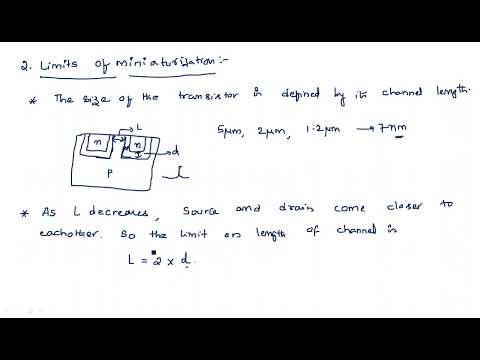 2. Limits of miniaturization:-
* The size of the transistor is defined by its channel length.
L
5μm, 2μm, 1.2μm → 7nm
n n
d
P
* As L decreases, Source and drain come closer to
eachother. So the limit on length of channel is
L = 2 × d.